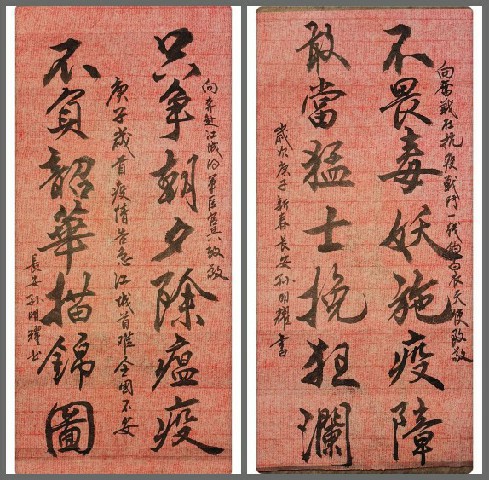 向奮战在抗疫戰鬥一线的白衣天使致敬
不畏毒妖施疫障
敢當猛士挽狂瀾
歲次庚子新春長安孙明耀書
向奔赴江城的軍医官兵致敬
只争朝夕除瘟疫
庚子歲首疫情告急江城首难全国不安
不負韶華描錦圖
長安孙明耀书